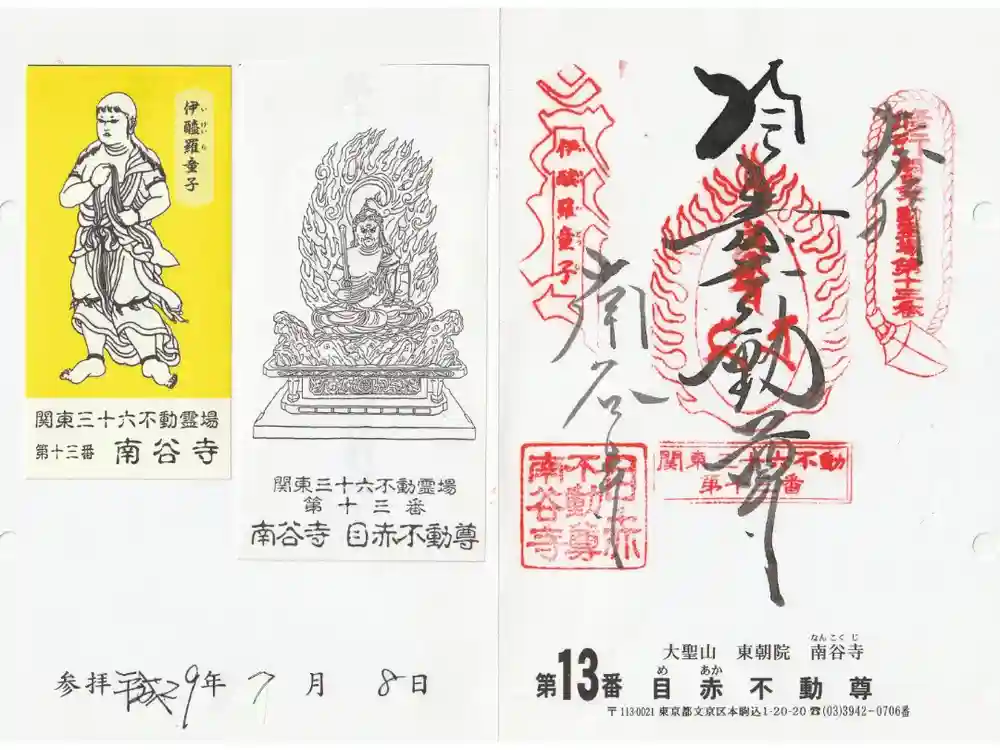 伊醯羅童子
いけいら
関東三十六不動霊場
第十三番 南谷寺
関東三十六不動霊場
第十三番
南谷寺 目赤不動尊
参拝平成29年7月8日
伊醯羅童子
奉拝
目赤不動尊
南谷寺
目赤
不動尊
南谷寺
関東三十六不動
第十三番
なんこくじ
大聖山 東朝院 南谷寺
め あか
第13番 目赤不動尊
〒113-0021 東京都文京区本駒込1-20-20 ☎(03)3942-0706番